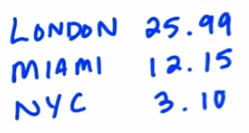 LONDON 25.99
MIAMI 12.15
NYC 3.10